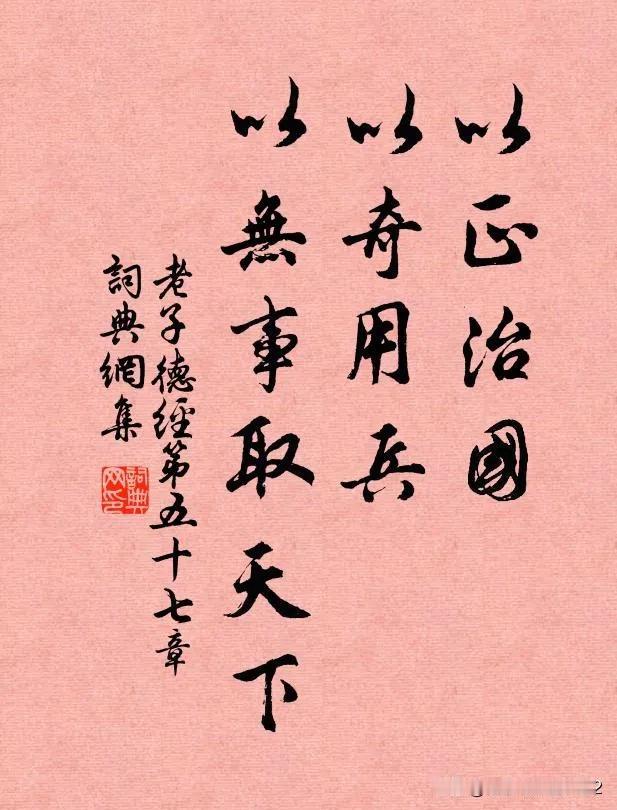 以正治國
以奇用兵
以無事取天下
老子德經第五十七章
詞典網集
詞典网印
2